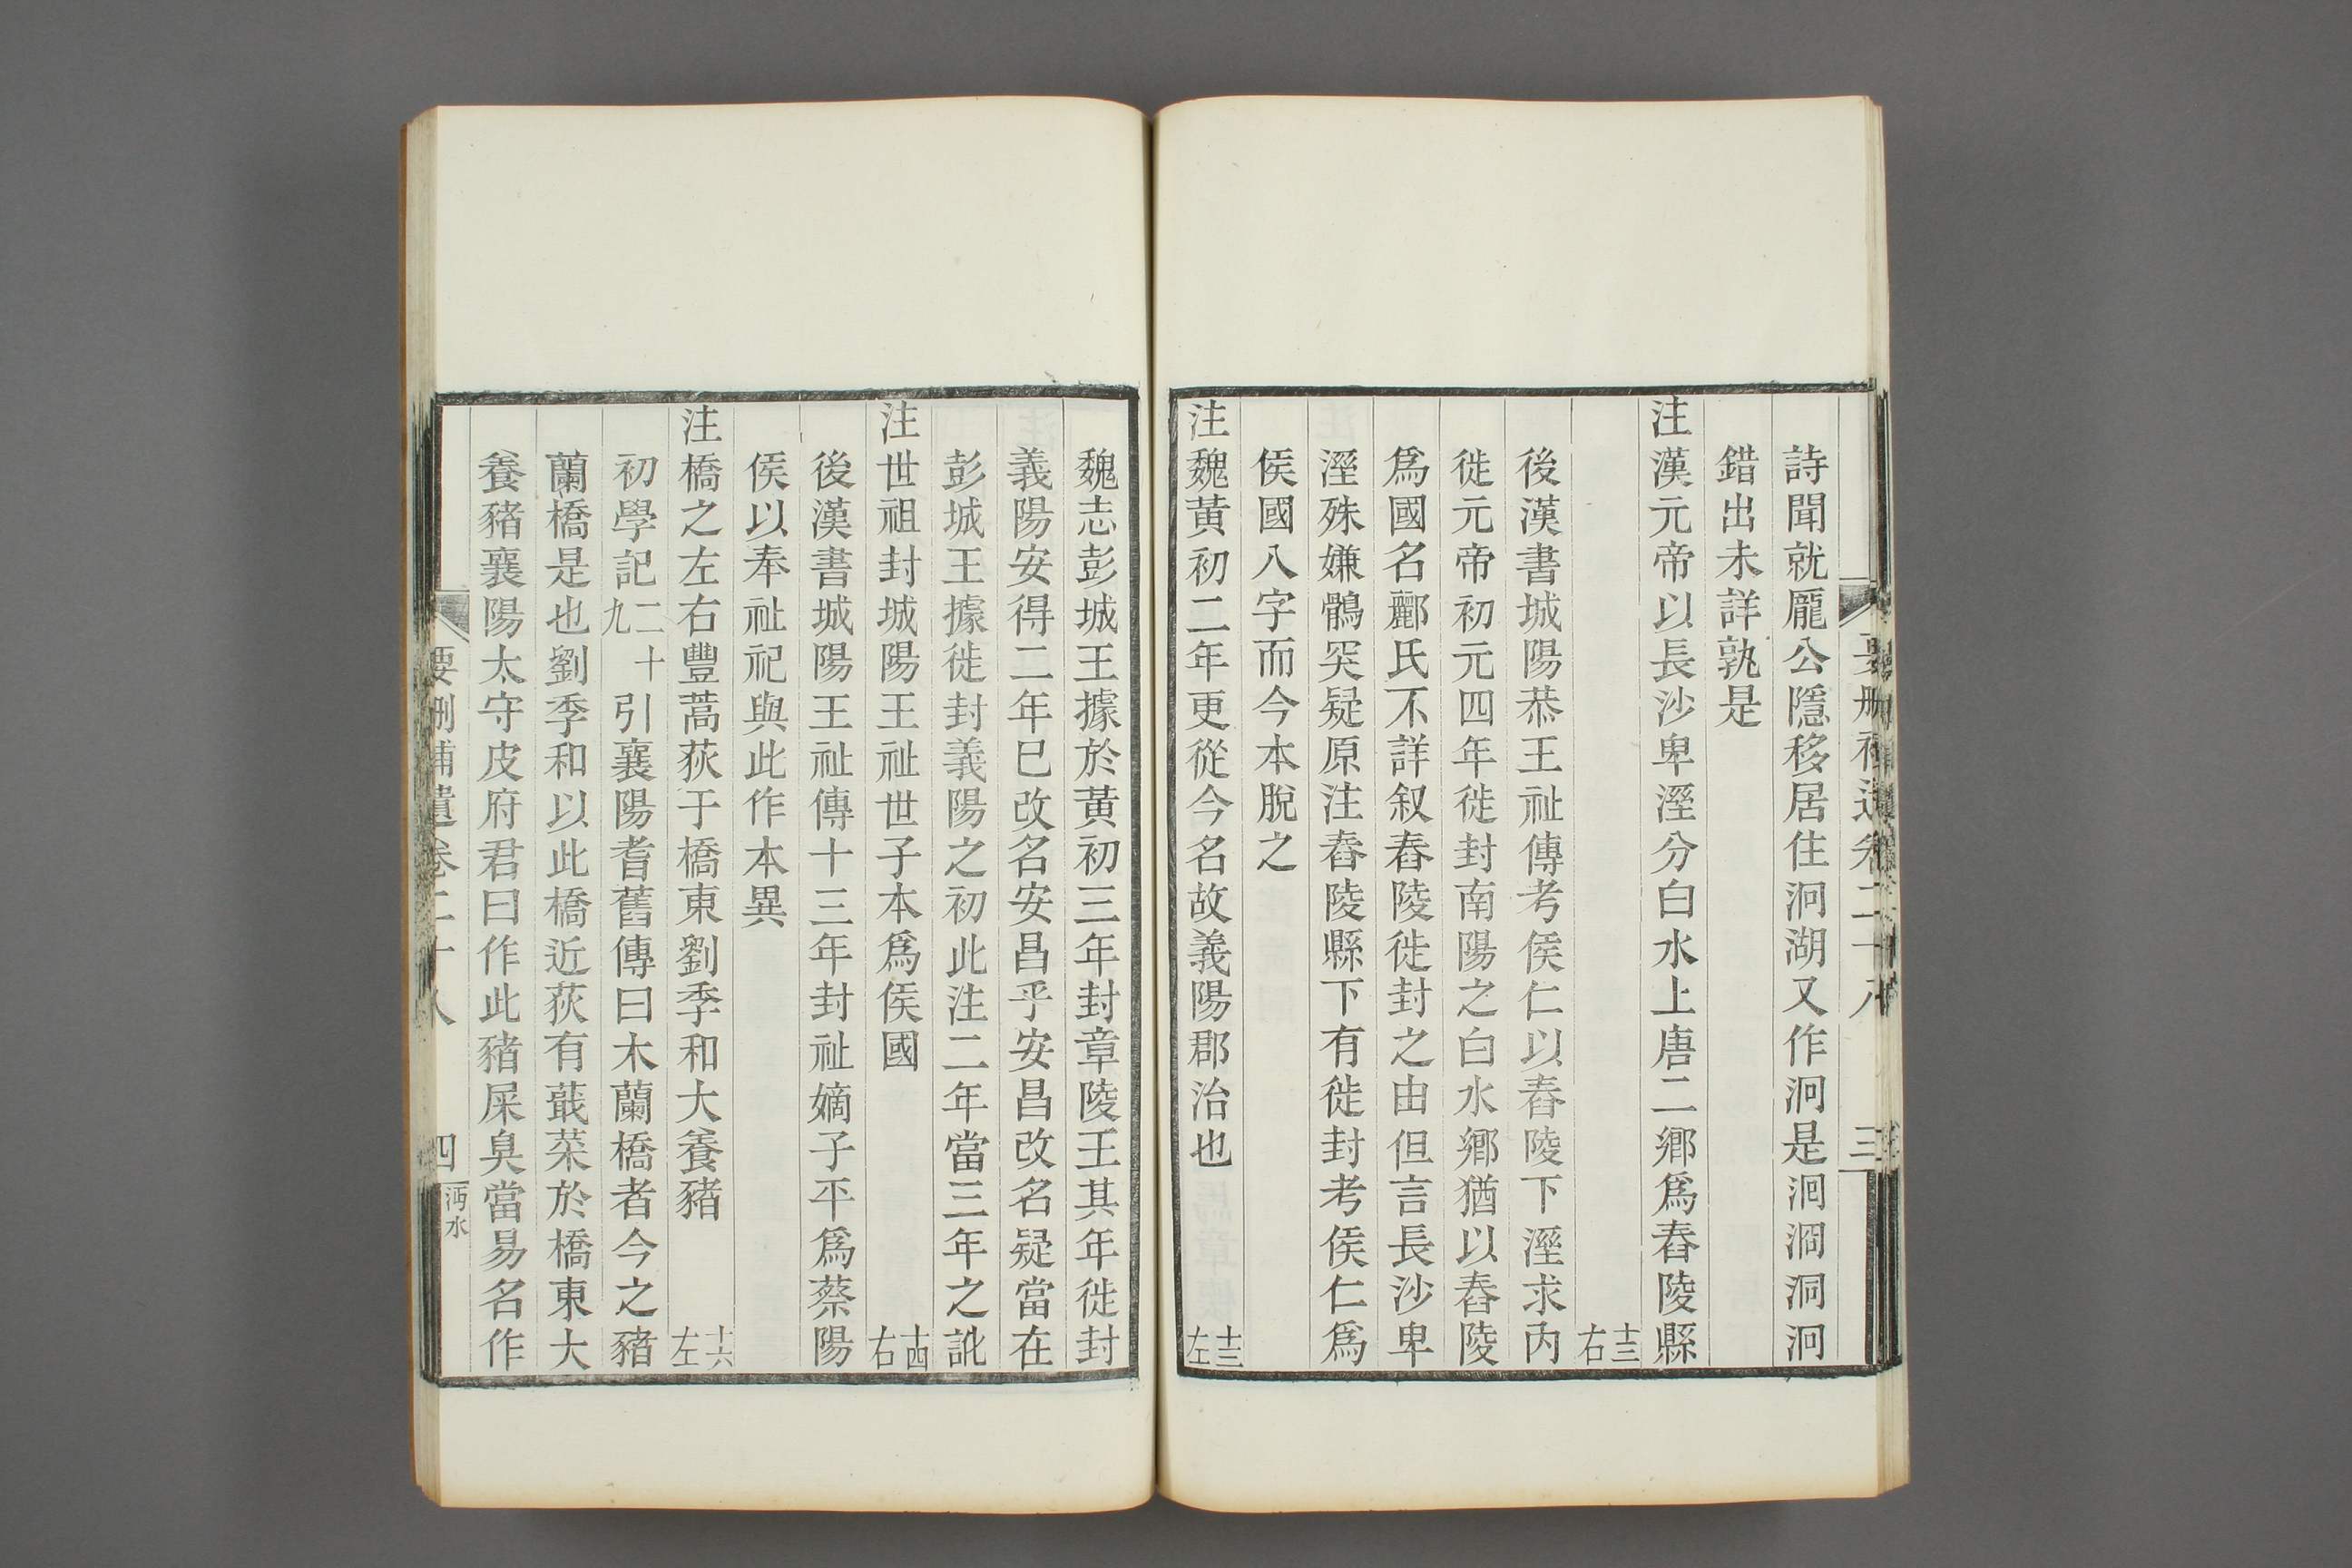 要刪補遺卷二十八 三
詩聞就龎公隱移居住泂湖又作泂是洄㴚洞泂
錯出未詳孰是
注漢元帝以長沙卑溼分白水上唐二鄉爲舂陵縣
十三右
後漢書城陽恭王祉傳考侯仁以舂陵下溼求內
徙元帝初元四年徙封南陽之白水鄉猶以舂陵
爲國名酈氏不詳叙舂陵徙封之由但言長沙卑
溼殊嫌鶻突疑原注舂陵縣下有徙封考侯仁爲
侯國八字而今本脫之
注魏黃初二年更從今名故義陽郡治也 十三左
魏志彭城王據於黃初三年封章陵王其年徙封
義陽安得二年巳改名安昌乎安昌改名疑當在
彭城王據徙封義陽之初此注二年當三年之訛
注世祖封城陽王祉世子本爲侯國 十四右
後漢書城陽王祉傳十三年封祉嫡子平爲蔡陽
侯以奉祉祀與此作本異
注橋之左右豐蒿荻于橋東劉季和大養豬 十六左
初學記二十九引襄陽耆舊傳曰木蘭橋者今之豬
蘭橋是也劉季和以此橋近荻有蕺菜於橋東大
養豬襄陽太守皮府君曰作此豬屎臭當易名作
要刪補遺卷二十八 四 沔水